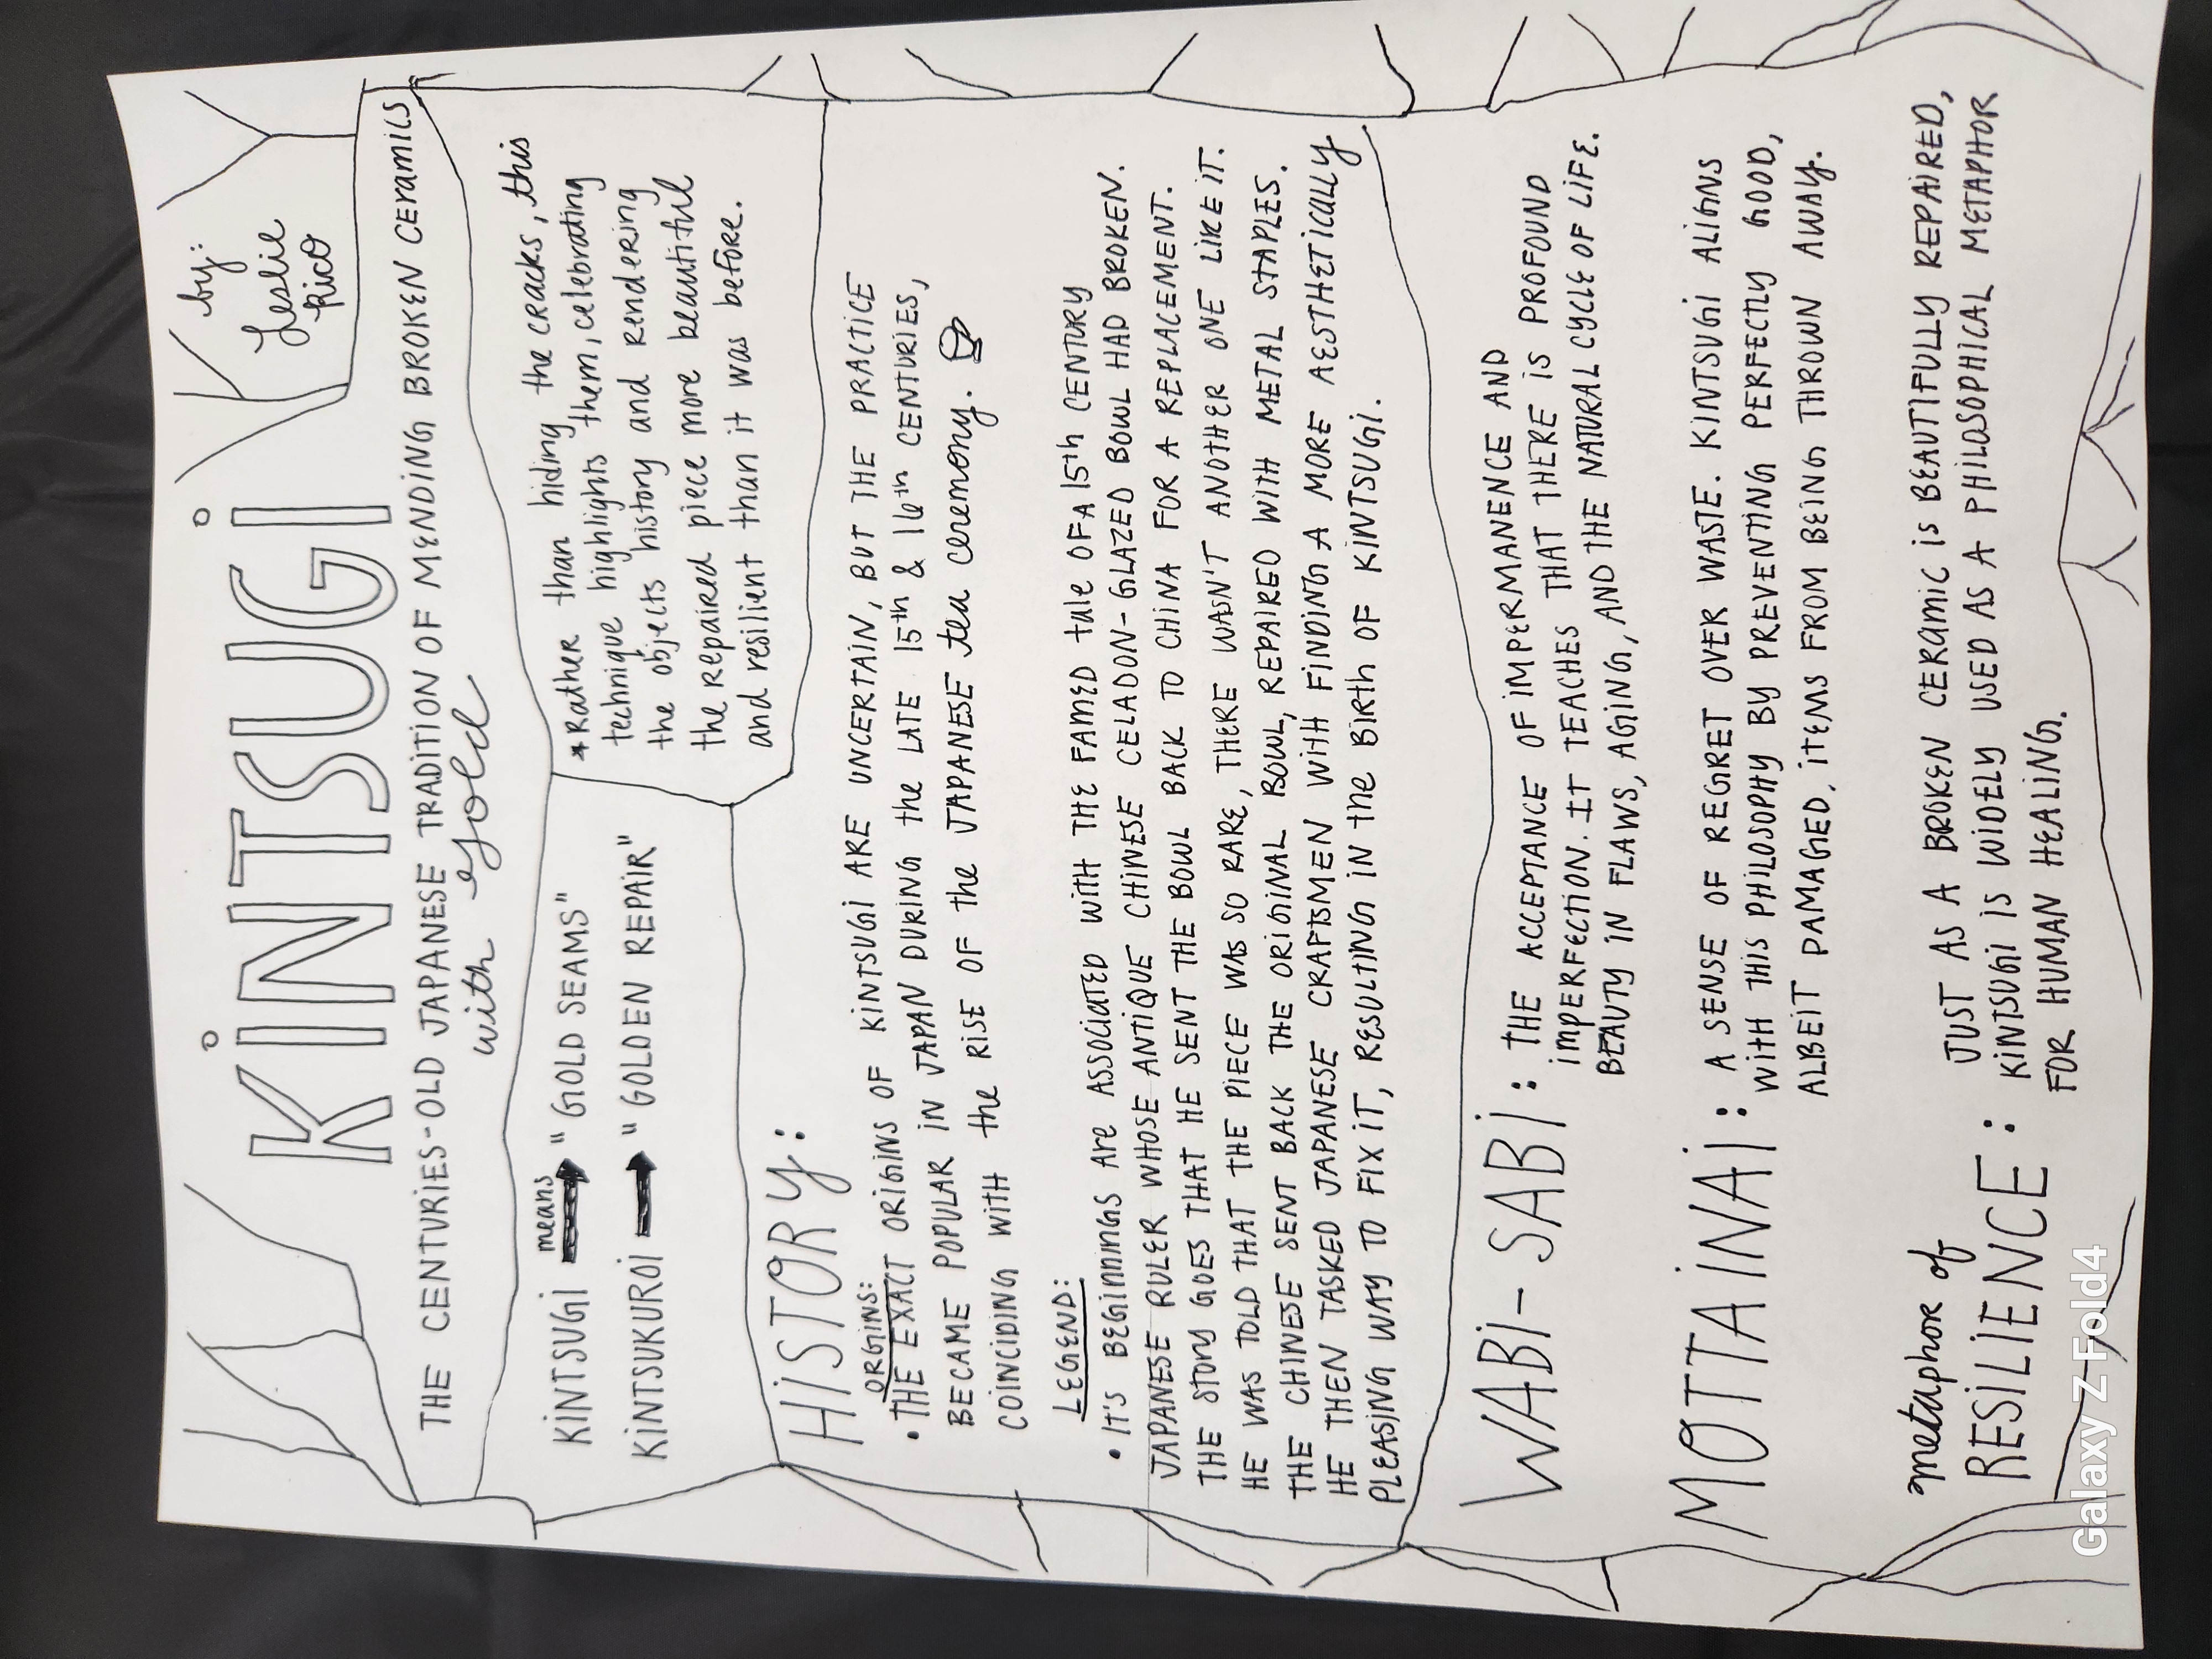 KINTSUGI
by:
Leslie
Rico
THE CENTURIES-OLD JAPANESE TRADITION OF MENDING BROKEN CERAMICS
with gold
KINTSUGI means "GOLD SEAMS"
KINTSUKUROI "GOLDEN REPAIR"
*Rather than hiding the cracks, this
technique highlights them, celebrating
the objects history and rendering
the repaired piece more beautiful
and resilient than it was before.
HISTORY:
ORGINS:
• THE EXACT ORIGINS OF KINTSUGI ARE UNCERTAIN, BUT THE PRACTICE
BECAME POPULAR IN JAPAN DURING the LATE 15th & 16th CENTURIES,
COINCIDING WITH the RISE OF the JAPANESE tea ceremony.
LEGEND:
• IT'S BEGINNINGS Are ASSOCIATED WITH THE FAMED tale OF A 15th CENTURY
JAPANESE RULER WHOSE ANTIQUE CHINESE CELADON-GLAZED BOWL HAD BROKEN.
THE STORY GOES THAT HE SENT THE BOWL BACK TO CHINA FOR A REPLACEMENT.
HE WAS TOLD THAT THE PIECE WAS SO RARE, THERE WASN'T ANOTHER ONE LIKE IT.
THE CHINESE SENT BACK THE ORIGINAL BOWL, REPAIRED WITH METAL STAPLES.
HE THEN TASKED JAPANESE CRAFTSMEN WITH FINDING A MORE AESTHETICALLY
PLEASING WAY TO FIX IT, RESULTING IN the BIRTH OF KINTSUGI.
WABI-SABI: THE ACCEPTANCE OF IMPERMANENCE AND
IMPERFECTION. IT TEACHES THAT THERE IS PROFOUND
BEAUTY IN FLAWS, AGING, AND THE NATURAL CYCLE OF LIFE.
MOTTAINAI: A SENSE OF REGRET OVER WASTE. KINTSUGI ALIGNS
WITH THIS PHILOSOPHY BY PREVENTING PERFECTLY GOOD,
ALBEIT DAMAGED, ITEMS FROM BEING THROWN AWAY.
metaphor of
RESILIENCE: JUST AS A BROKEN CERAMIC IS BEAUTIFULLY REPAIRED,
KINTSUGI IS WIDELY USED AS A PHILOSOPHICAL METAPHOR
FOR HUMAN HEALING.
Galaxy Z Fold4